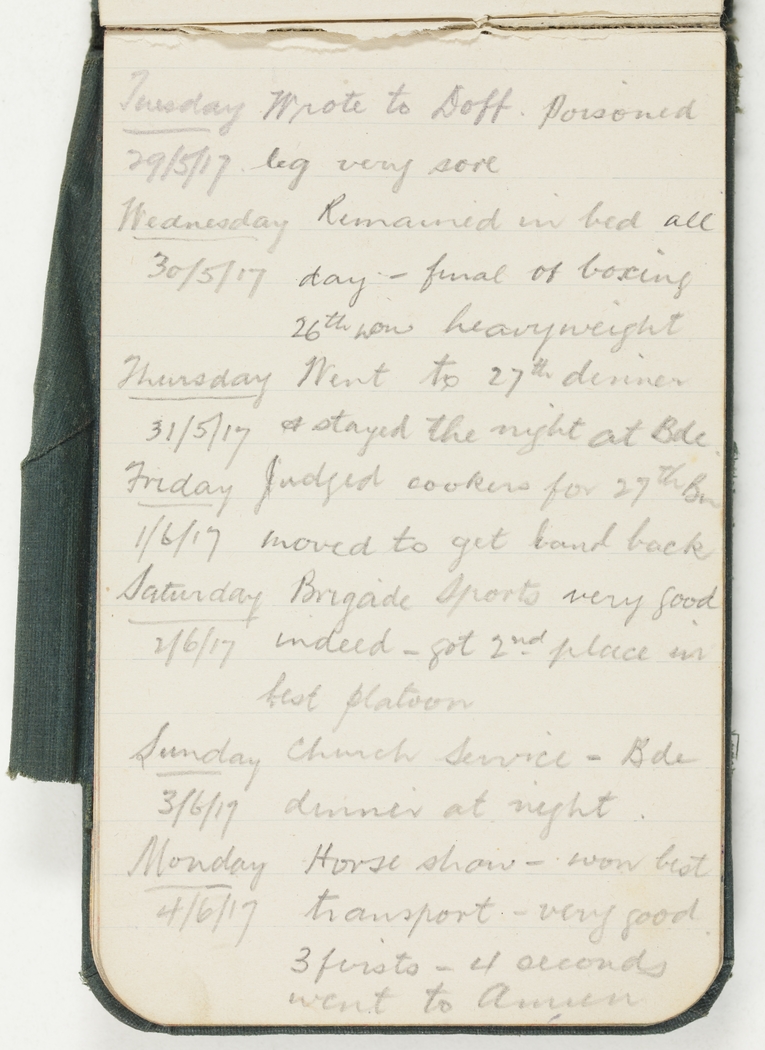 Tuesday Wrote to Doff. Poisoned
29/5/17. leg very sore
Wednesday Remained in bed all
30/5/17 day - final of boxing
26th won heavyweight
Thursday Went to 27th dinner
31/5/17 & stayed the night at Bde.
Friday Judged cookers for 27th Bn
1/6/17 moved to get band back
Saturday Brigade Sports very good
2/6/17 indeed - got 2nd place in
best platoon
Sunday Church Service - Bde
3/6/17 dinner at night.
Monday Horse show - won best
4/6/17 transport - very good
3 firsts - 4 seconds
went to Amien